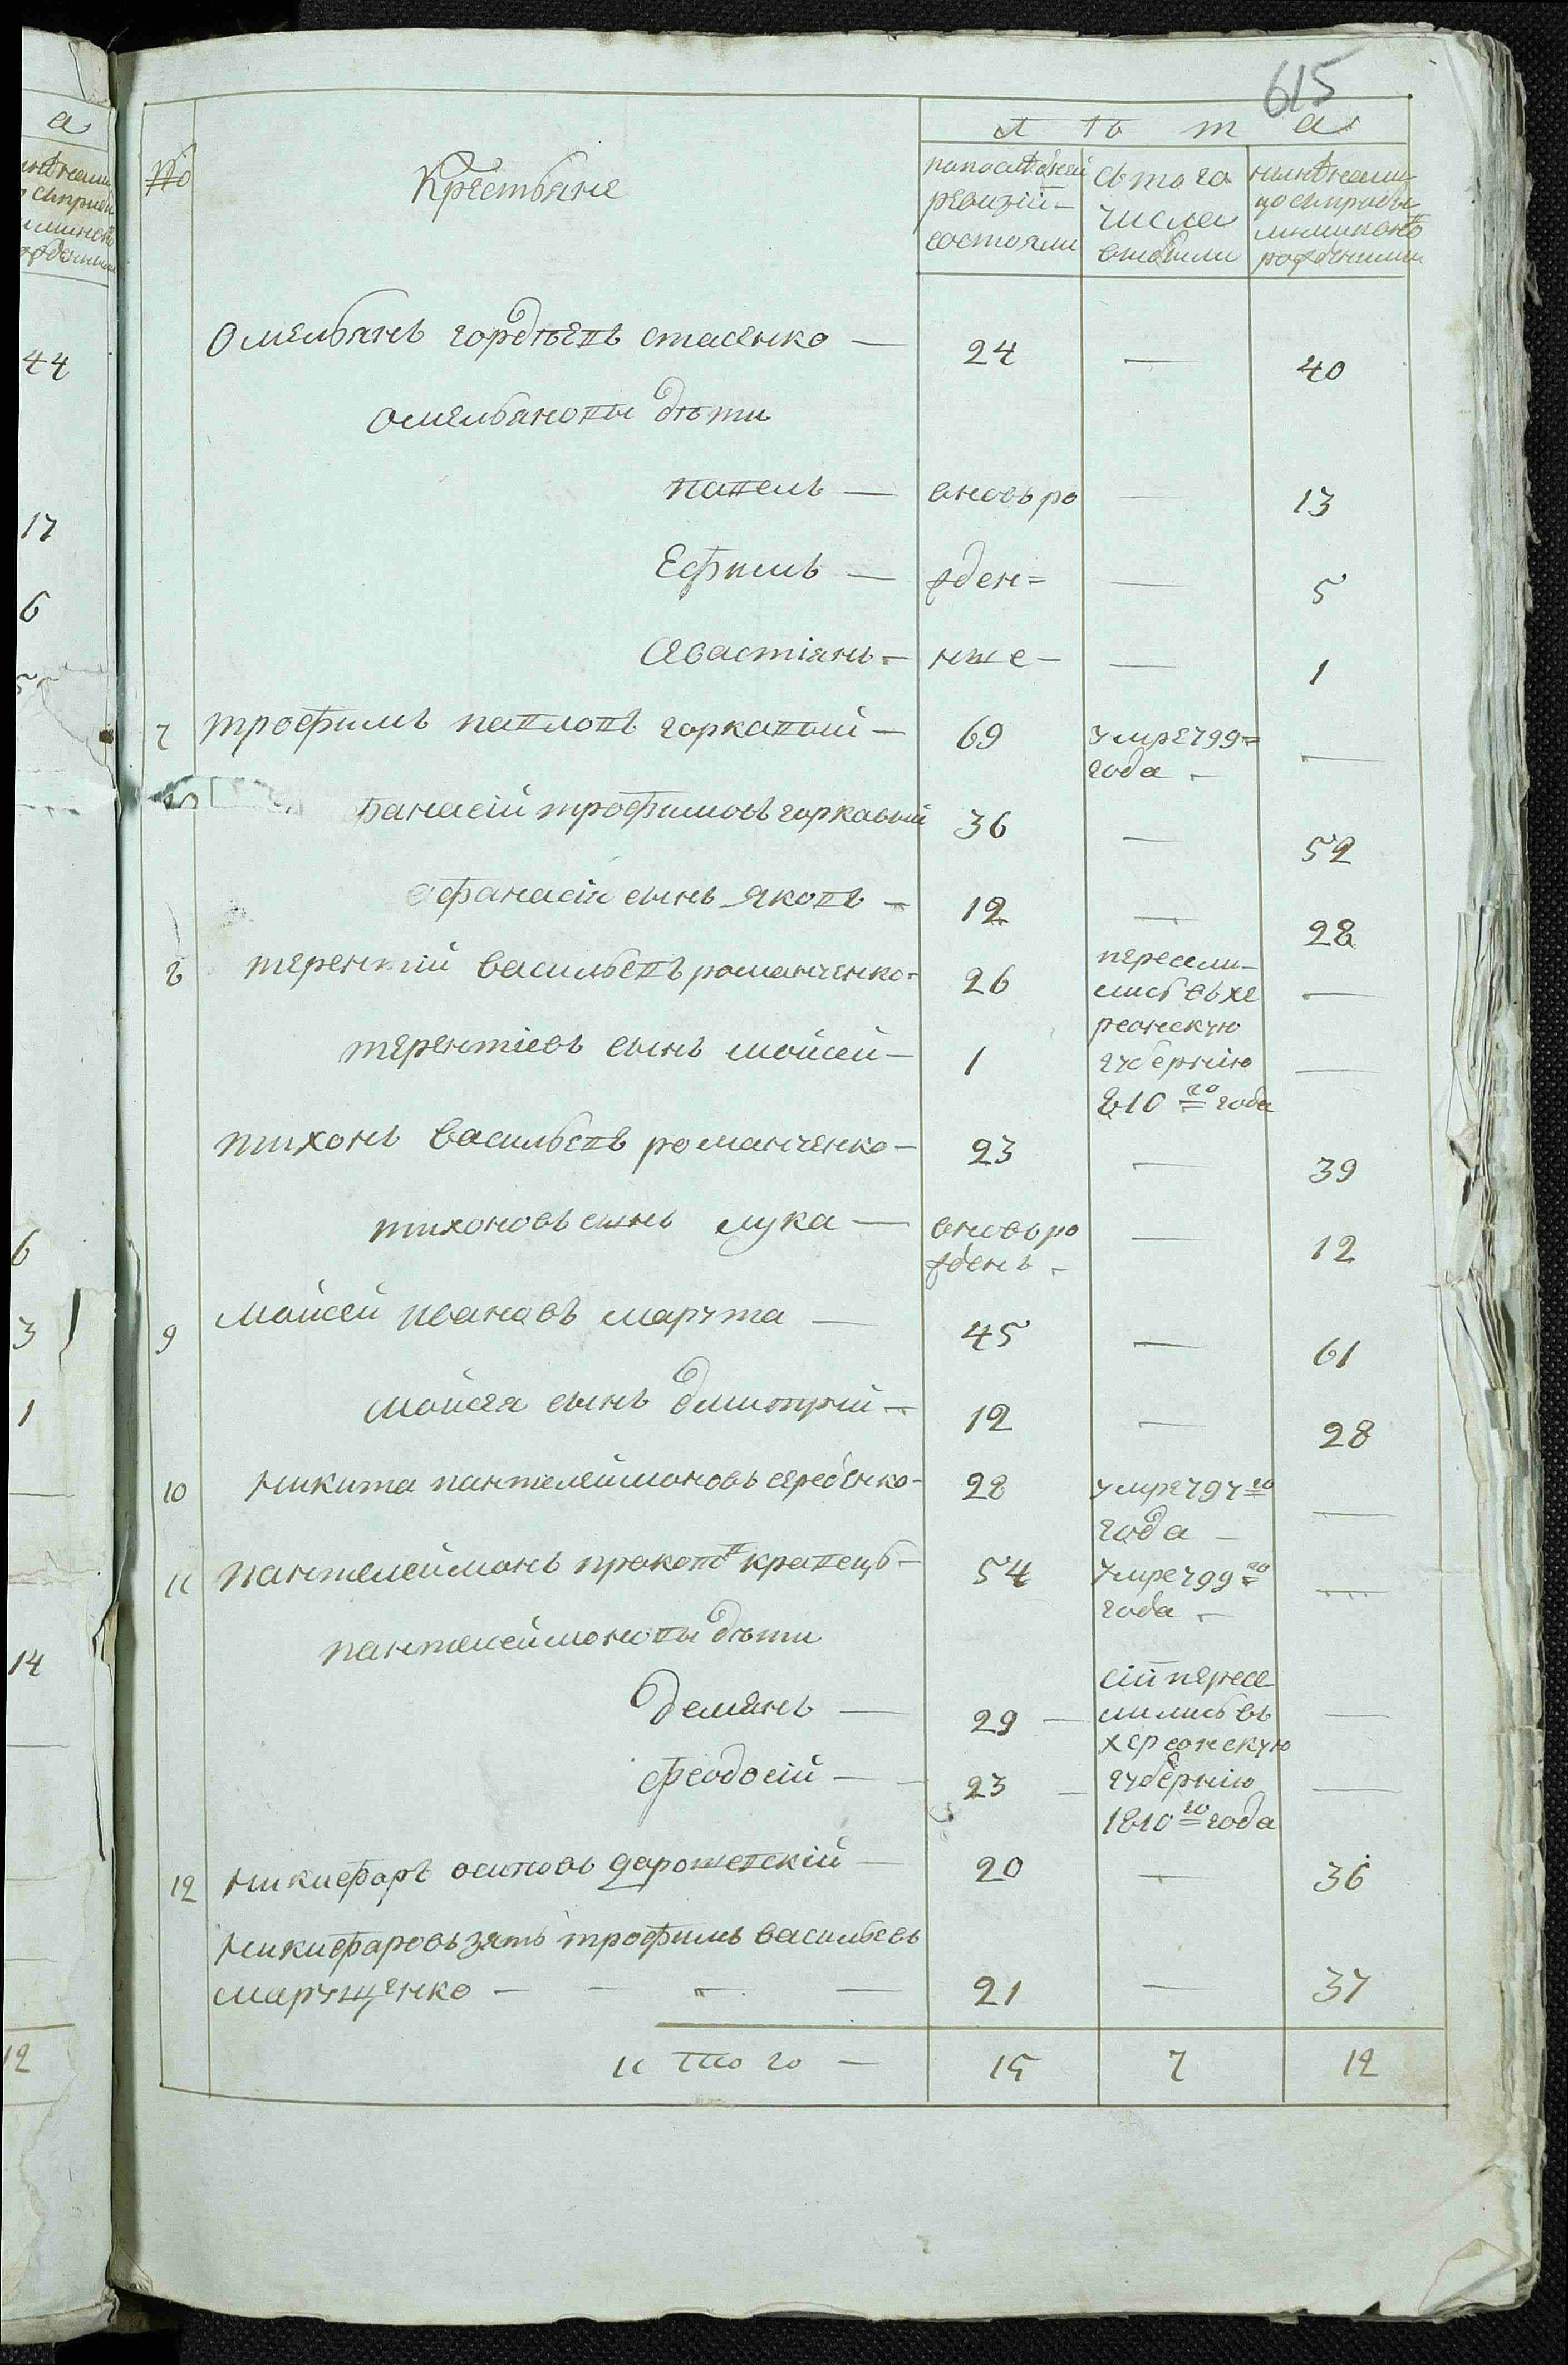 615
Л Ѣ т а
№ Крестьяне
по последней ревизии состояли
съ того числа выбыли
ныне налицо съ прибылыми и вновь рожденными
Омельянъ гордѣевъ стасенко — 24 — 40
омельяновы дѣти
павелъ — вновь ро — 13
Ефимъ — жден= — 5
Савастіянъ — ные — 1
7 трофимъ павловъ гаркавый — 69 умре 799=
года — —
Афанасій трофимовъ гаркавый 36 — 52
афанасія сынъ яковъ — 12 — 28
8 терентій васильевъ романченко — 26 пересели-
лись въ хе —
терентіевъ сынъ мойсей — 1 рсонскую
губернію —
810 го года
тихонъ васильевъ романченко — 23 — 39
тихоновъ сынъ лука — вновь ро
жденъ — — 12
9 мойсей ивановъ марута — 45 — 61
мойсея сынъ дмитрій — 12 — 28
10 никита пантелеймоновъ середенко — 28 умре 797 го
года — —
11 пантелеймонъ прокоповъ кравецъ — 54 умре 799 го
года — —
пантелеймоновы дѣти
демянъ — 29 — сіи пересе
лились въ —
херсонскую
феодосій — 23 — губернію —
1810 го года
12 никифоръ осиповъ дорошевскій — 20 — 36
никифоровъ зять трофимъ васильевъ
марущенко — — — — 21 — 37
итого — 15 7 12
а
44
17
6
5
6
3
1
14
12